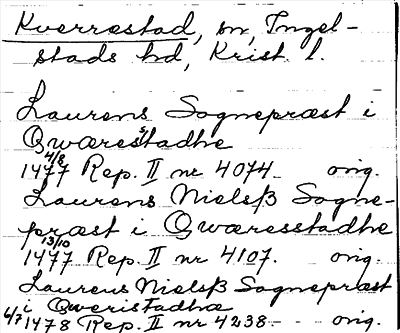 Kverrestad, sn, Ingel-
stads hd, Krist. l.
Laurens Sognepræst i
Qwæresstadhe
4/8
1477 Rep. II nr 4074. orig.
Laurens Nielsß Sogne-
præst i Qwæresstadhe
13/10
1477 Rep. II nr 4107. orig.
Laurens Nielsß Sognepræst
i Qweristadhæ
6/7 1478 Rep. II nr 4238. orig.